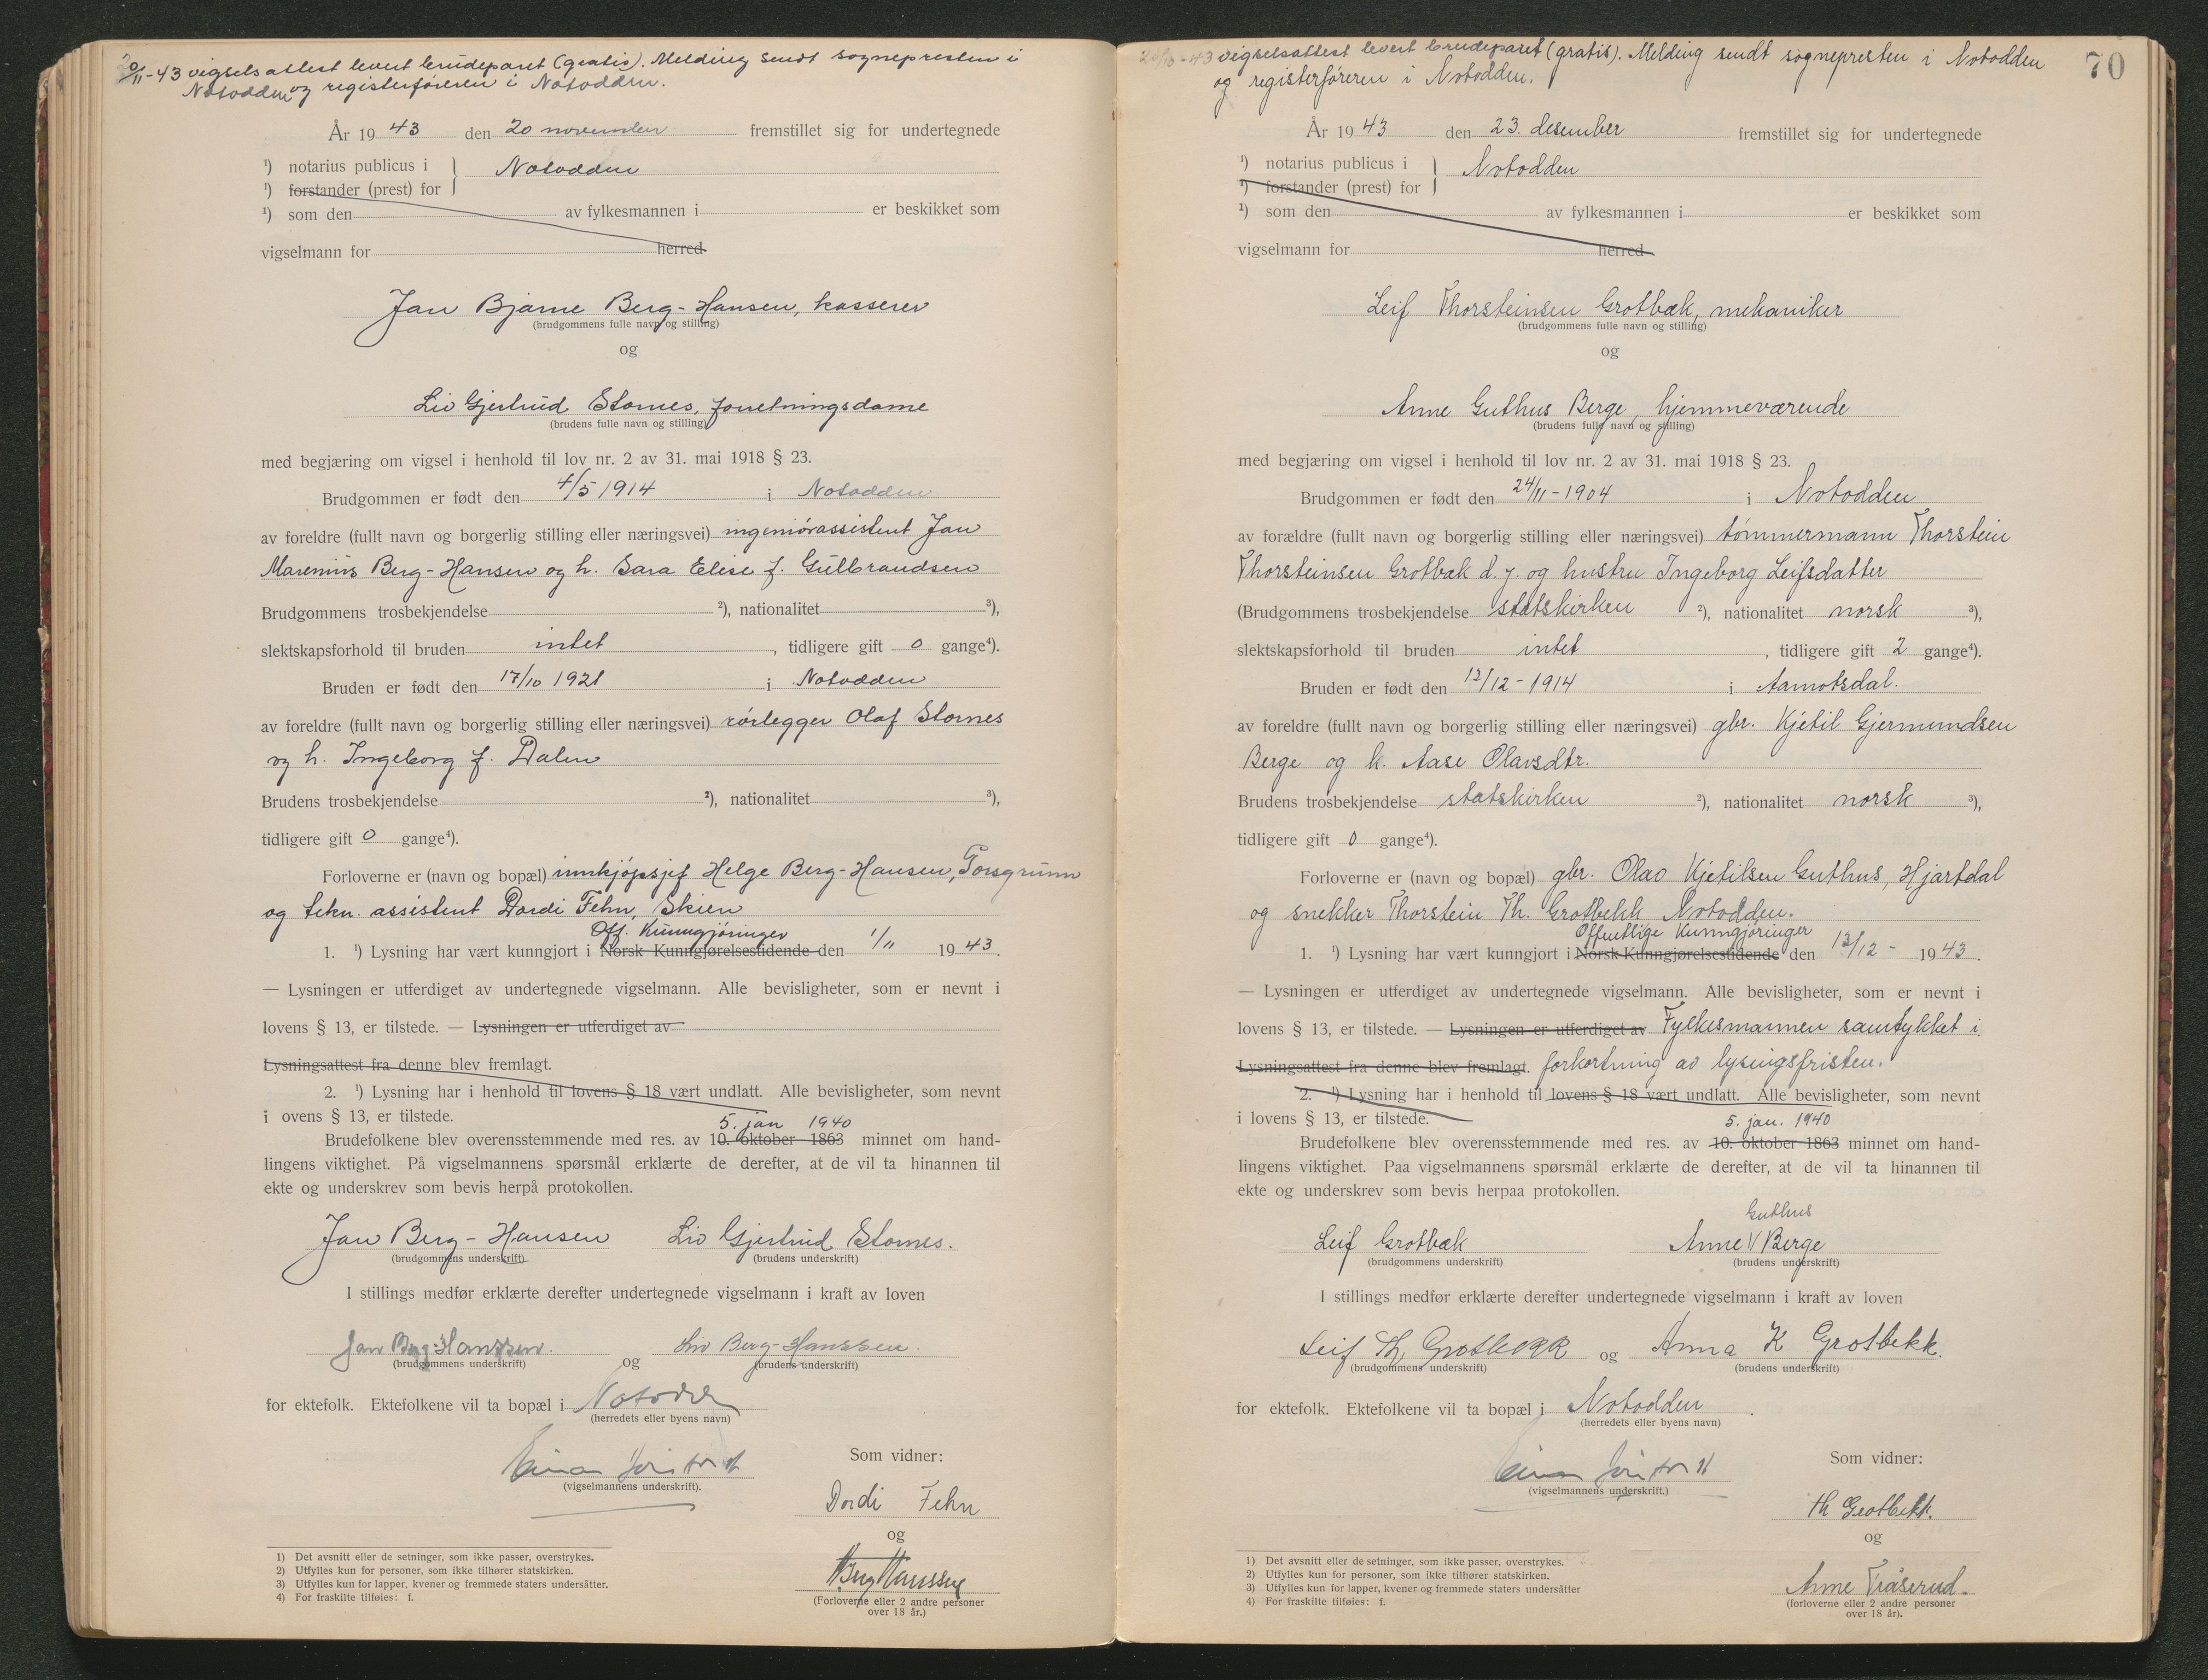 20/11-43 vigselsattest levert brudeparet (gratis). Melding sendt sognepresten i
Notodden og registerføreren i Notodden.
År 1943 den 20 november fremstillet sig for undertegnede
¹) notarius publicus i } Notodden
¹) forstander (prest) for
¹) som den av fylkesmannen i er beskikket som
vigselmann for herred
Jan Bjarne Berg-Hansen, kasserer
(brudgommens fulle navn og stilling)
og
Liv Gjertrud Stornes, forretningsdame
(brudens fulle navn og stilling)
med begjæring om vigsel i henhold til lov nr. 2 av 31. mai 1918 § 23.
Brudgommen er født den 4/5 1914 i Notodden
av foreldre (fullt navn og borgerlig stilling eller næringsvei) ingeniørassistent Jan
Marenius Berg-Hansen og h. Sara Elise f. Gulbrandsen
Brudgommens trosbekjendelse ²), nationalitet ³),
slektskapsforhold til bruden intet, tidligere gift 0 gange⁴).
Bruden er født den 17/10 1921 i Notodden
av foreldre (fullt navn og borgerlig stilling eller næringsvei) rørlegger Olaf Stornes
og h. Ingeborg f. Dalen
Brudens trosbekjendelse ²), nationalitet ³),
tidligere gift 0 gange⁴).
Forloverne er (navn og bopæl) innkjøpsjef Helge Berg-Hansen, Porsgrunn
og tekn. assistent Dordi Fehn, Skien
Off. Kunngjøringer
1. ¹) Lysning har vært kunngjort i Norsk Kunngjørelsestidende den 1/11 1943.
— Lysningen er utferdiget av undertegnede vigselmann. Alle bevisligheter, som er nevnt i
lovens § 13, er tilstede. — Lysningen er utferdiget av
Lysningsattest fra denne blev fremlagt.
2. ¹) Lysning har i henhold til lovens § 18 vært undlatt. Alle bevisligheter, som nevnt
i ovens § 13, er tilstede.
5. jan 1940
Brudefolkene blev overensstemmende med res. av 10. oktober 1863 minnet om hand-
lingens viktighet. På vigselmannens spørsmål erklærte de derefter, at de vil ta hinannen til
ekte og underskrev som bevis herpå protokollen.
Jan Berg-Hansen Liv Gjertrud Stornes.
(brudgommens underskrift) (brudens underskrift)
I stillings medfør erklærte derefter undertegnede vigselmann i kraft av loven
Jan Berg-Hanssen. og Liv Berg-Hanssen.
(brudgommens underskrift) (brudens underskrift)
for ektefolk. Ektefolkene vil ta bopæl i Notodden
(herredets eller byens navn)
Som vidner:
(vigselmannens underskrift).
Dordi Fehn
og
HBerg Hanssen
(Forloverne eller 2 andre personer
over 18 år.)
1) Det avsnitt eller de setninger, som ikke passer, overstrykes.
2) Utfylles kun for personer, som ikke tilhører statskirken.
3) Utfylles kun for lapper, kvener og fremmede staters undersåtter.
4) For fraskilte tilføies: f.
70
-43 vigselsattest levert brudeparet (gratis). Melding sendt sognepresten i Notodden
og registerføreren i Notodden.
År 1943 den 23. desember fremstillet sig for undertegnede
¹) notarius publicus i } Notodden
¹) forstander (prest) for
¹) som den av fylkesmannen i er beskikket som
vigselmann for herred
Leif Thorsteinsen Grotbæk, mekaniker
(brudgommens fulle navn og stilling)
og
Anne Guthus Berge, hjemmeværende
(brudens fulle navn og stilling)
med begjæring om vigsel i henhold til lov nr. 2 av 31. mai 1918 § 23.
Brudgommen er født den 24/11-1904 i Notodden
av forældre (fullt navn og borgerlig stilling eller næringsvei) tømmermann Thorstein
Thorsteinsen Grotbæk d. y. og hustru Ingeborg Leifsdatter
(Brudgommens trosbekjendelse statskirken ²), nationalitet norsk ³),
slektskapsforhold til bruden intet, tidligere gift 2 gange⁴).
Bruden er født den 12/12-1914 i Aamotsdal.
av foreldre (fullt navn og borgerlig stilling eller næringsvei) gbr. Kjetil Gjermundsen
Berge og h. Aase Olavsdtr.
Brudens trosbekjendelse statskirken ²), nationalitet norsk ³),
tidligere gift 0 gange⁴).
Forloverne er (navn og bopæl) gbr. Olav Kjetilsen Guthus, Hjartdal
og snekker Thorstein Th. Grotbekk Notodden.
Offentlige Kunngjøringer
1. ¹) Lysning har vært kunngjort i Norsk Kunngjørelsestidende den 13/12- 1943.
— Lysningen er utferdiget av undertegnede vigselmann. Alle bevisligheter, som er nevnt i
lovens § 13, er tilstede. — Lysningen er utferdiget av Fylkesmannen samtykket i
Lysningsattest fra denne blev fremlagt. forkortning av lysingsfristen.
2. ¹) Lysning har i henhold til lovens § 18 vært undlatt. Alle bevisligheter, som nevnt
i lovens § 13, er tilstede.
5. jan. 1940
Brudefolkene blev overensstemmende med res. av 10. oktober 1863 minnet om hand-
lingens viktighet. Paa vigselmannens spørsmål erklærte de derefter, at de vil ta hinannen til
ekte og underskrev som bevis herpaa protokollen.
Guthus
Leif Grotbæk Anne V Berge
(brudgommens underskrift) (brudens underskrift)
I stillings medfør erklærte derefter undertegnede vigselmann i kraft av loven
Leif Th. Grotbekk og Anna K Grotbekk.
(brudgommens underskrift) (brudens underskrift)
for ektefolk. Ektefolkene vil ta bopæl i Notodden.
(herredets eller byens navn)
Som vidner:
(vigselmannens underskrift.)
Th Grotbekk.
og
Anne Tråserud.
(forloverne eller 2 andre personer
over 18 år).
1) Det avsnitt eller de setninger, som ikke passer, overstrykes.
2) Utfylles kun for personer, som ikke tilhører statskirken.
3) Utfylles kun for lapper, kvener og fremmede staters undersåtter
4) For fraskilte tilføies: f.